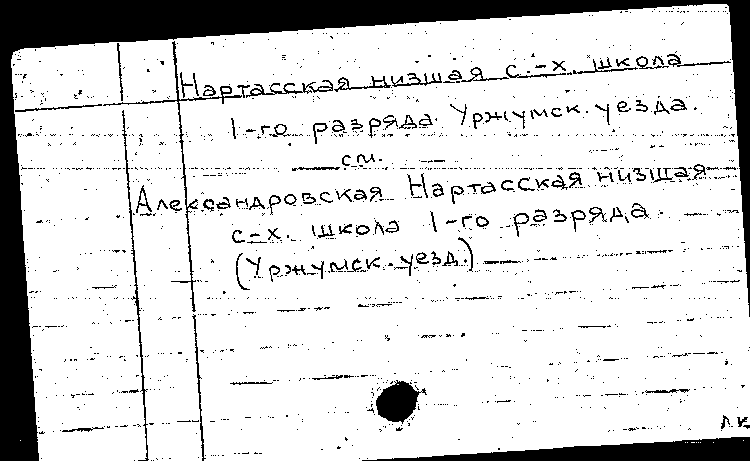 Нартасская низшая с.-х. школа
1-го разряда. Уржумск. уезда.
см.
Александровская Нартасская низшая
с-х. школа 1-го разряда.
(Уржумск. уезд.)
л.к.